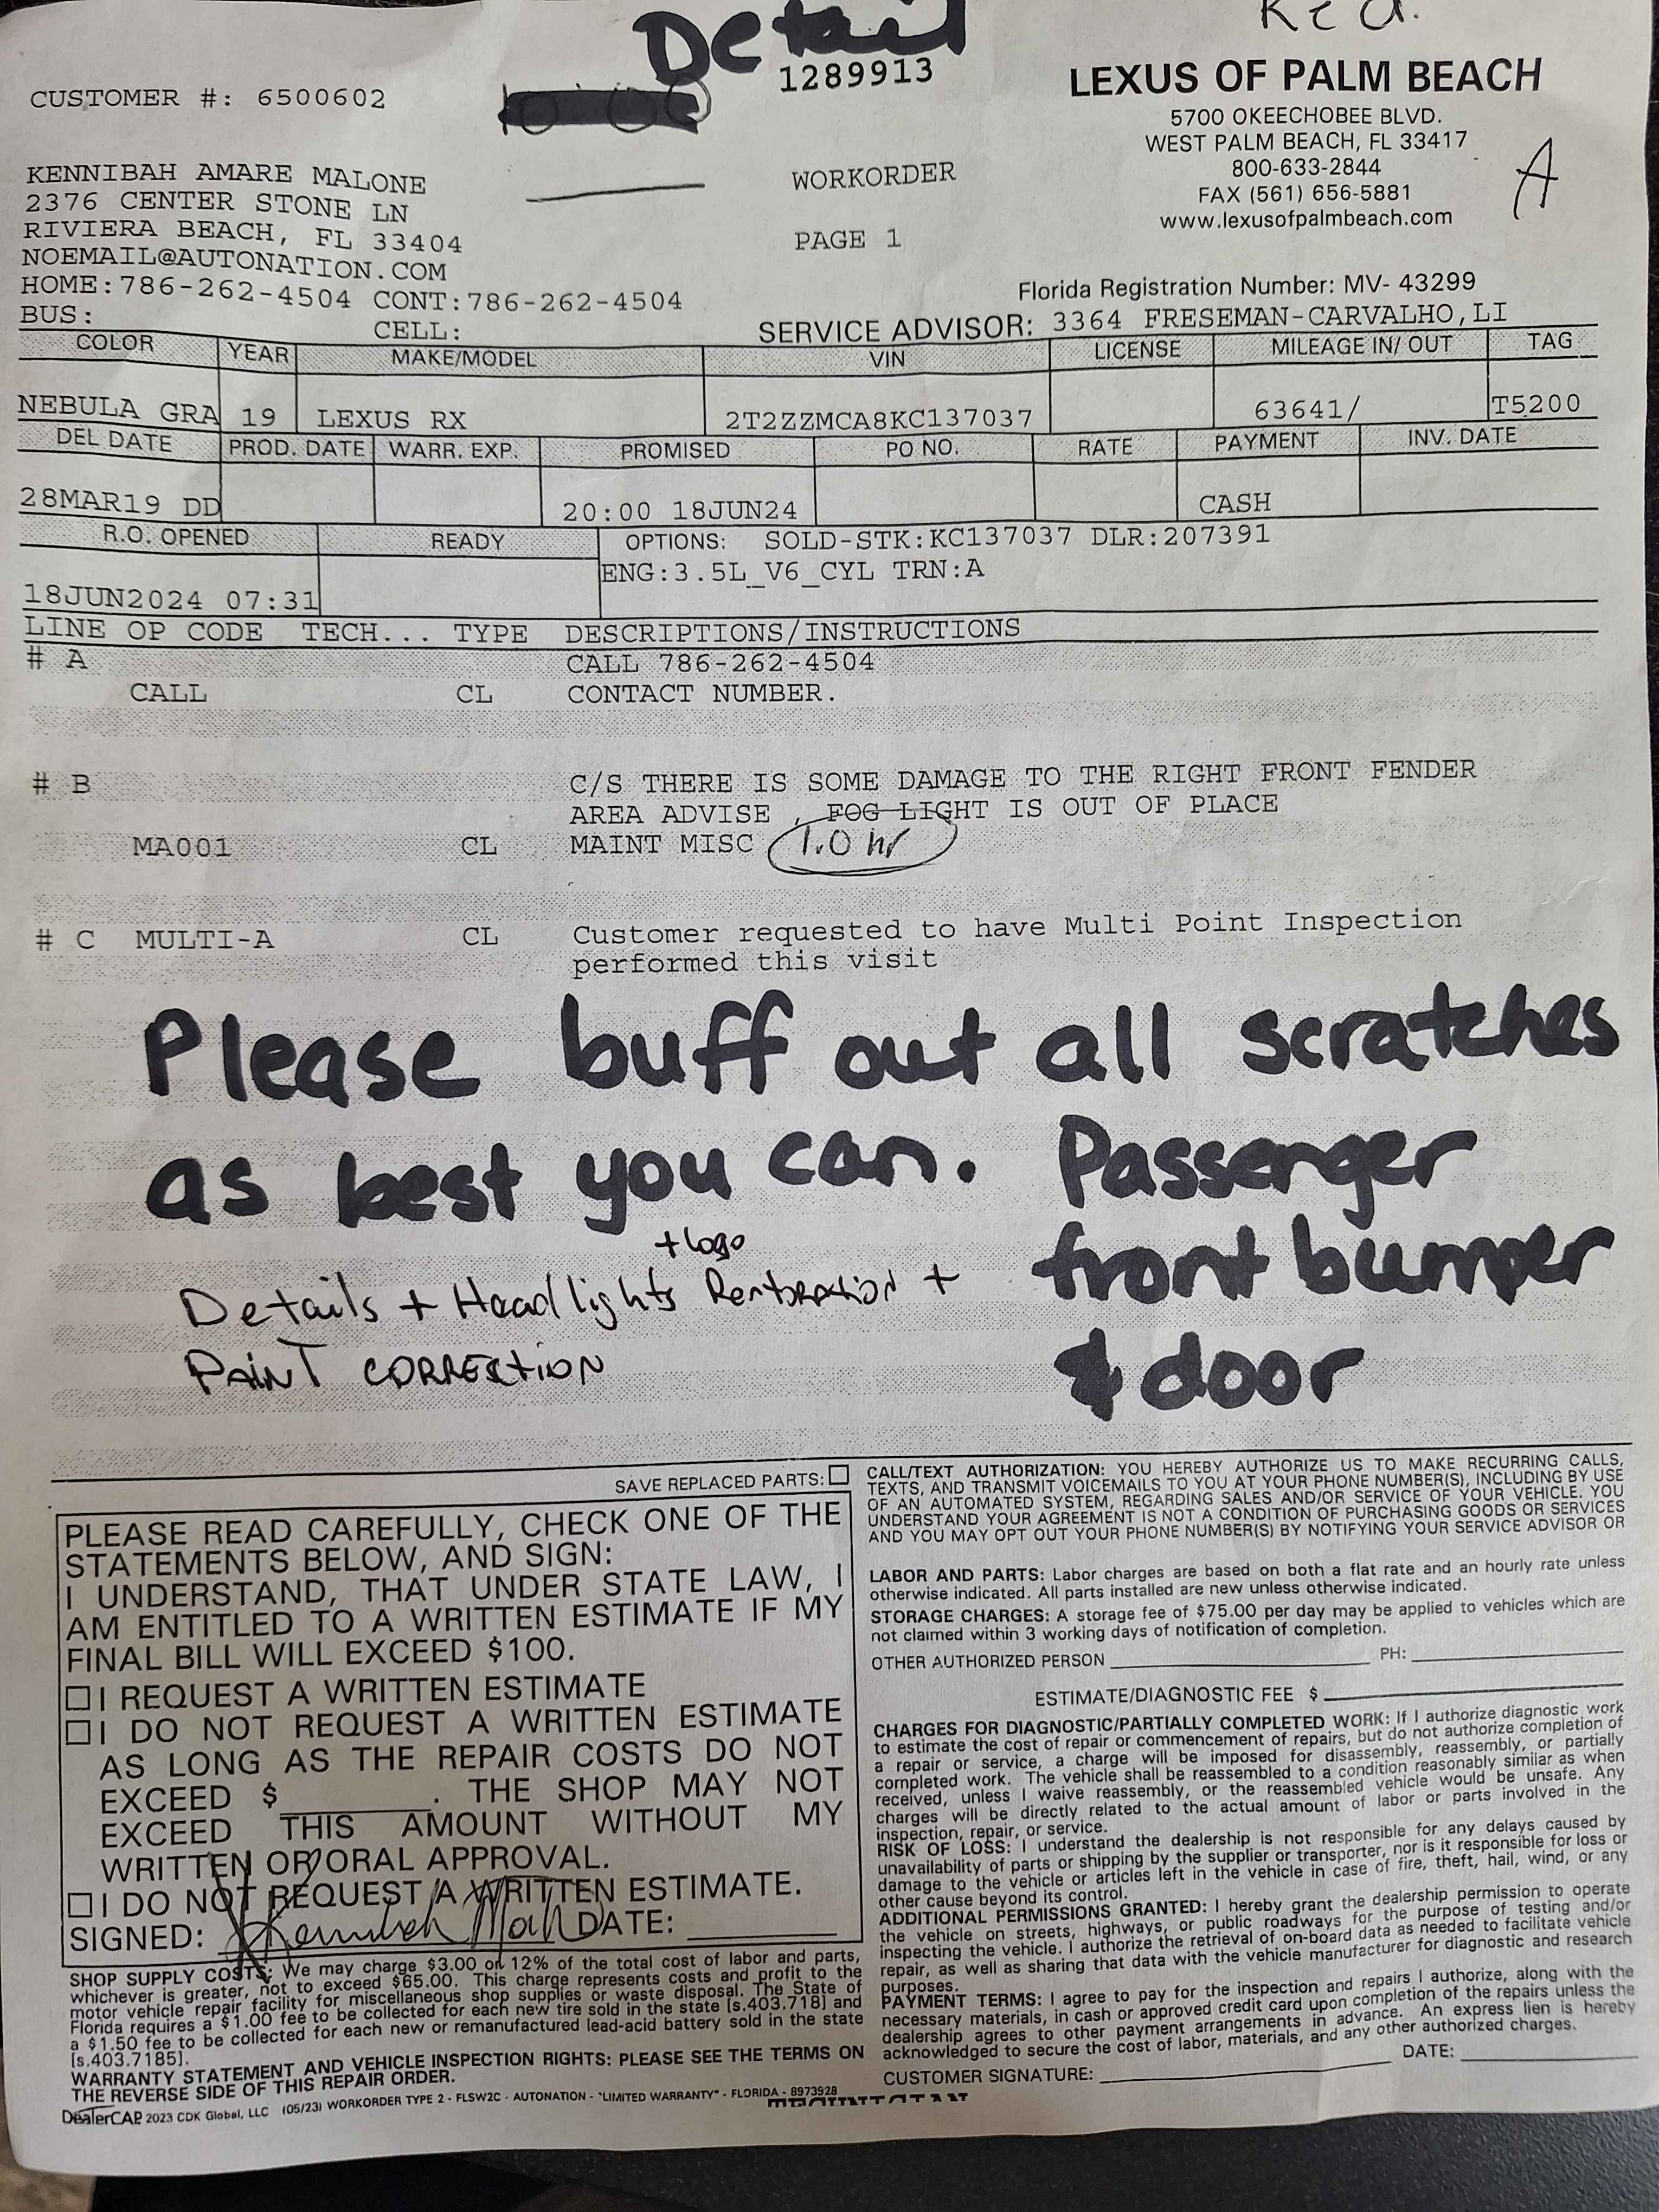 Detail
Red.
1289913
LEXUS OF PALM BEACH
5700 OKEECHOBEE BLVD.
WEST PALM BEACH, FL 33417
800-633-2844
FAX (561) 656-5881
www.lexusofpalmbeach.com
A
CUSTOMER #: 6500602
KENNIBAH AMARE MALONE
2376 CENTER STONE LN
RIVIERA BEACH, FL 33404
NOEMAIL@AUTONATION.COM
HOME:786-262-4504 CONT:786-262-4504
BUS: CELL:
WORKORDER
PAGE 1
Florida Registration Number: MV- 43299
SERVICE ADVISOR: 3364 FRESEMAN-CARVALHO,LI
COLOR YEAR MAKE/MODEL VIN LICENSE MILEAGE IN/ OUT TAG
NEBULA GRA 19 LEXUS RX 2T2ZZMCA8KC137037 63641/ T5200
DEL DATE PROD. DATE WARR. EXP. PROMISED PO NO. RATE PAYMENT INV. DATE
28MAR19 DD 20:00 18JUN24 CASH
R.O. OPENED READY OPTIONS: SOLD-STK:KC137037 DLR:207391
ENG:3.5L_V6_CYL TRN:A
18JUN2024 07:31
LINE OP CODE TECH... TYPE DESCRIPTIONS/INSTRUCTIONS
# A CALL 786-262-4504
CALL CL CONTACT NUMBER.
# B C/S THERE IS SOME DAMAGE TO THE RIGHT FRONT FENDER
AREA ADVISE , FOG LIGHT IS OUT OF PLACE
MA001 CL MAINT MISC 1.0 hr
# C MULTI-A CL Customer requested to have Multi Point Inspection
performed this visit
Please buff out all scratches
as best you can. Passenger
front bumper
& door
+ logo
Details + Headlights Restoration +
PAINT CORRECTION
SAVE REPLACED PARTS:
PLEASE READ CAREFULLY, CHECK ONE OF THE
STATEMENTS BELOW, AND SIGN:
I UNDERSTAND, THAT UNDER STATE LAW, I
AM ENTITLED TO A WRITTEN ESTIMATE IF MY
FINAL BILL WILL EXCEED $100.
I REQUEST A WRITTEN ESTIMATE
I DO NOT REQUEST A WRITTEN ESTIMATE
AS LONG AS THE REPAIR COSTS DO NOT
EXCEED $ . THE SHOP MAY NOT
EXCEED THIS AMOUNT WITHOUT MY
WRITTEN OR ORAL APPROVAL.
I DO NOT REQUEST A WRITTEN ESTIMATE.
SIGNED: DATE:
SHOP SUPPLY COSTS: We may charge $3.00 or 12% of the total cost of labor and parts,
whichever is greater, not to exceed $65.00. This charge represents costs and profit to the
motor vehicle repair facility for miscellaneous shop supplies or waste disposal. The State of
Florida requires a $1.00 fee to be collected for each new tire sold in the state [s.403.718] and
a $1.50 fee to be collected for each new or remanufactured lead-acid battery sold in the state
[s.403.7185].
WARRANTY STATEMENT AND VEHICLE INSPECTION RIGHTS: PLEASE SEE THE TERMS ON
THE REVERSE SIDE OF THIS REPAIR ORDER.
DealerCAP 2023 CDK Global, LLC (05/23) WORKORDER TYPE 2 - FLSW2C - AUTONATION - "LIMITED WARRANTY" - FLORIDA - 8973928
CALL/TEXT AUTHORIZATION: YOU HEREBY AUTHORIZE US TO MAKE RECURRING CALLS,
TEXTS, AND TRANSMIT VOICEMAILS TO YOU AT YOUR PHONE NUMBER(S), INCLUDING BY USE
OF AN AUTOMATED SYSTEM, REGARDING SALES AND/OR SERVICE OF YOUR VEHICLE. YOU
UNDERSTAND YOUR AGREEMENT IS NOT A CONDITION OF PURCHASING GOODS OR SERVICES
AND YOU MAY OPT OUT YOUR PHONE NUMBER(S) BY NOTIFYING YOUR SERVICE ADVISOR OR
LABOR AND PARTS: Labor charges are based on both a flat rate and an hourly rate unless
otherwise indicated. All parts installed are new unless otherwise indicated.
STORAGE CHARGES: A storage fee of $75.00 per day may be applied to vehicles which are
not claimed within 3 working days of notification of completion.
OTHER AUTHORIZED PERSON PH:
ESTIMATE/DIAGNOSTIC FEE $
CHARGES FOR DIAGNOSTIC/PARTIALLY COMPLETED WORK: If I authorize diagnostic work
to estimate the cost of repair or commencement of repairs, but do not authorize completion of
a repair or service, a charge will be imposed for disassembly, reassembly, or partially
completed work. The vehicle shall be reassembled to a condition reasonably similar as when
received, unless I waive reassembly, or the reassembled vehicle would be unsafe. Any
charges will be directly related to the actual amount of labor or parts involved in the
inspection, repair, or service.
RISK OF LOSS: I understand the dealership is not responsible for any delays caused by
unavailability of parts or shipping by the supplier or transporter, nor is it responsible for loss or
damage to the vehicle or articles left in the vehicle in case of fire, theft, hail, wind, or any
other cause beyond its control.
ADDITIONAL PERMISSIONS GRANTED: I hereby grant the dealership permission to operate
the vehicle on streets, highways, or public roadways for the purpose of testing and/or
inspecting the vehicle. I authorize the retrieval of on-board data as needed to facilitate vehicle
repair, as well as sharing that data with the vehicle manufacturer for diagnostic and research
purposes.
PAYMENT TERMS: I agree to pay for the inspection and repairs I authorize, along with the
necessary materials, in cash or approved credit card upon completion of the repairs unless the
dealership agrees to other payment arrangements in advance. An express lien is hereby
acknowledged to secure the cost of labor, materials, and any other authorized charges.
CUSTOMER SIGNATURE: DATE: